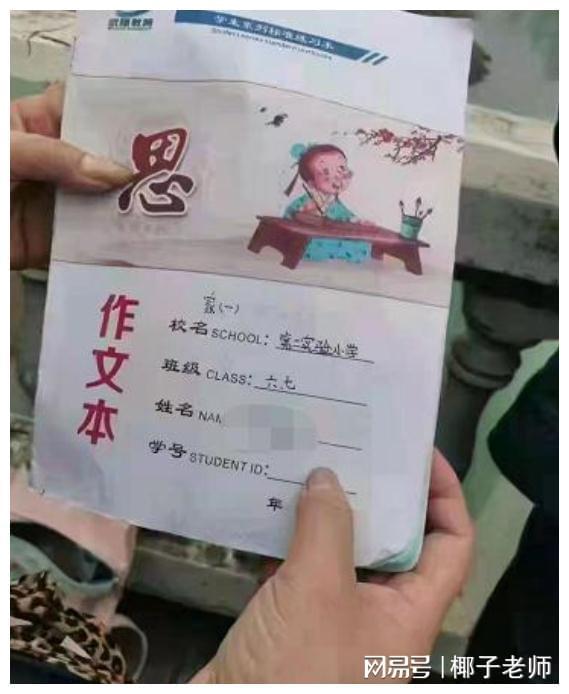 武穆教育
学生系列标准练习本
思
作文本
家(一)
校名 SCHOOL: 第二实验小学
班级 CLASS: 六七
姓名 NAM
学号 STUDENT ID:
年
网易号 | 椰子老师